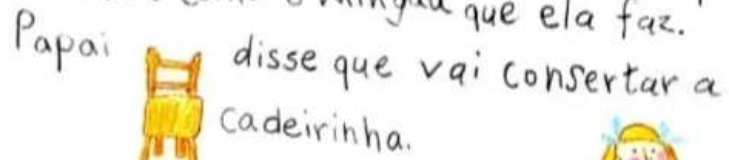 que ela faz.
Papai disse que vai consertar a
cadeirinha.